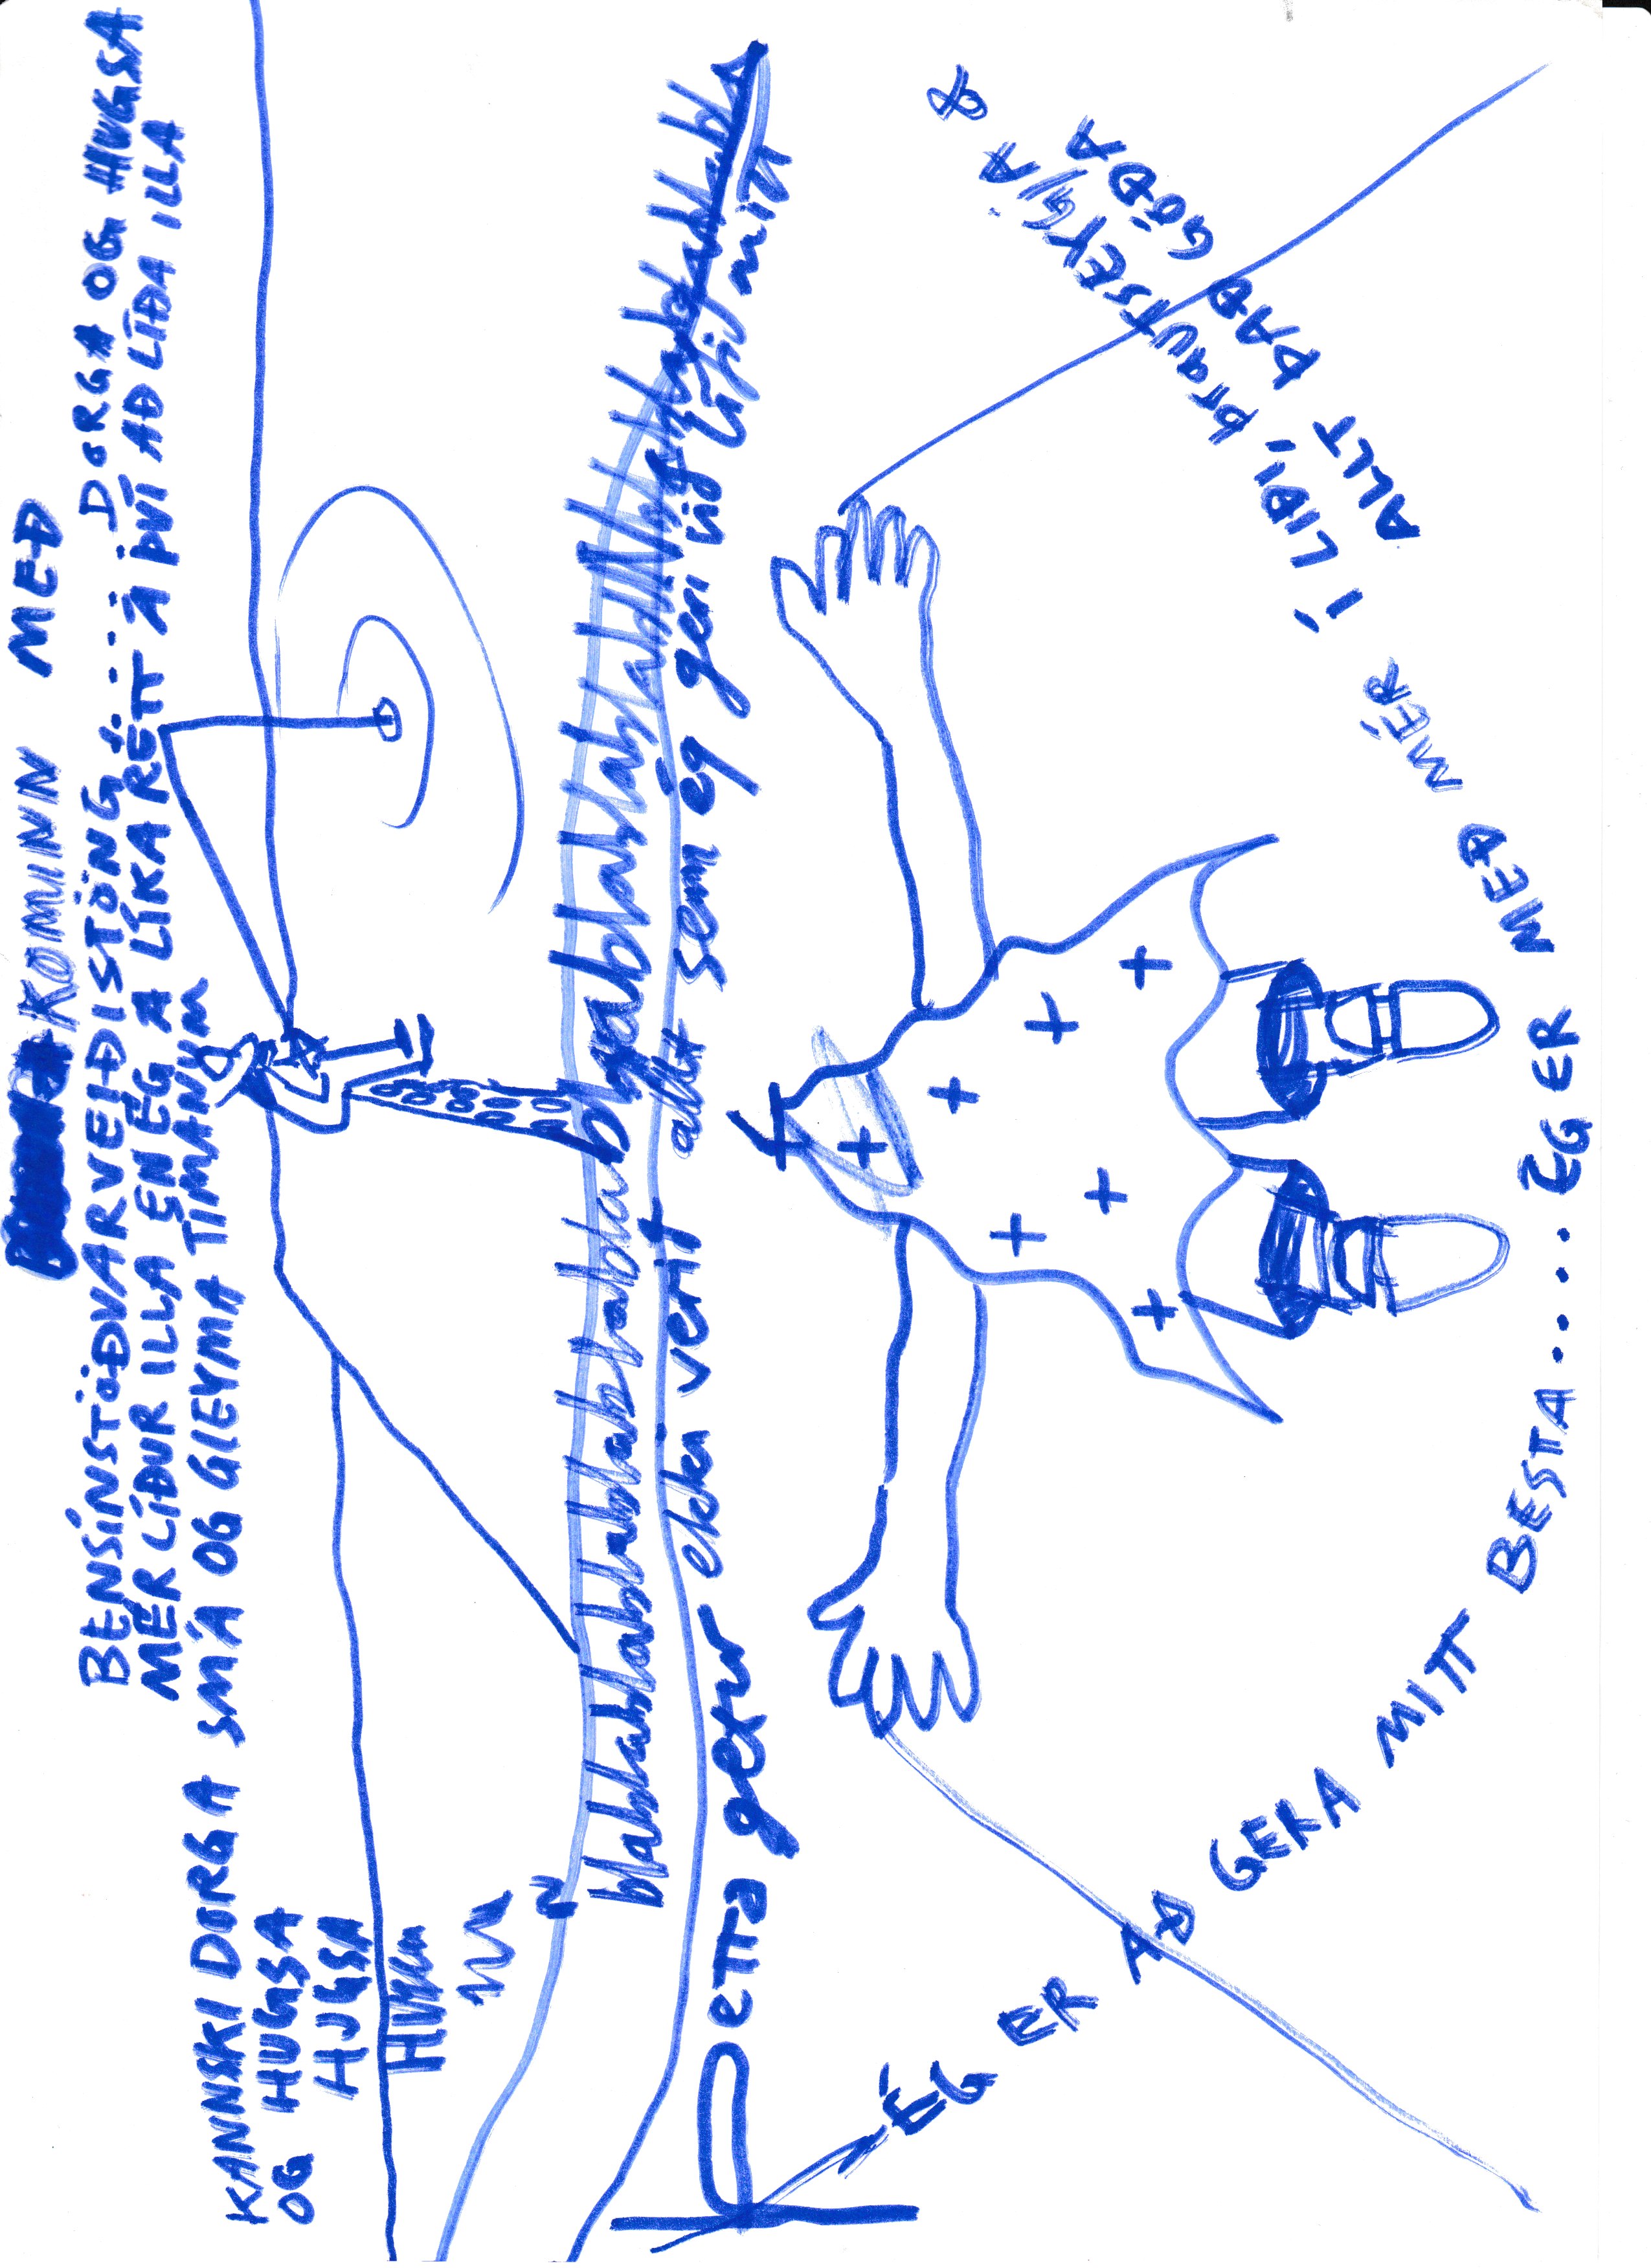 KOMINN MEÐ
BENSÍNSTÖÐVARVEIÐISTÖNG...... DORGA OG HUGSA
MÉR LÍÐUR ILLA EN ÉG Á LÍKA RÉTT Á ÞVÍ AÐ LÍÐA ILLA
KANNSKI DORGA SMÁ OG GLEYMA TÍMANUM
OG HUGSA
HUGSA
blablablablablablablablablablablablablablablablabla
Þetta getur ekki verið allt sem ég geri við lífið mitt
ÉG ER AÐ GERA MITT BESTA.... ÉG ER MEÐ MÉR Í LIÐI, þrautseygja &
ALLT ÞAÐ GÓÐA